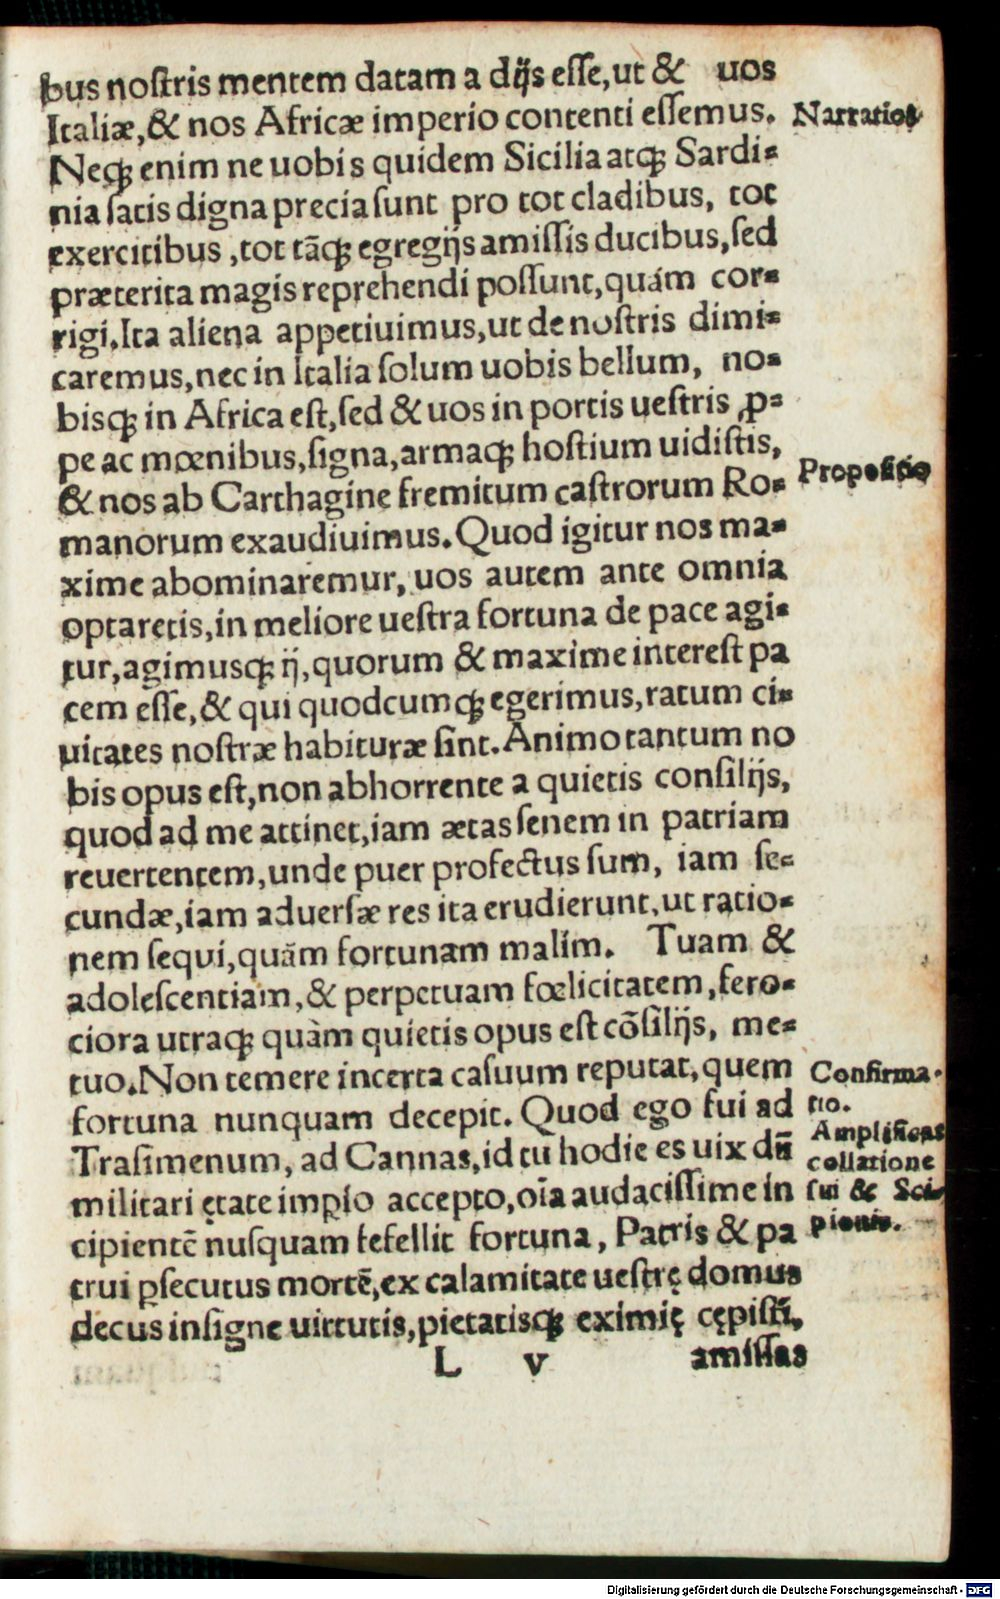 bus nostris mentem datam a dijs esse, ut & uos
Italiæ, & nos Africæ imperio contenti essemus.
Neq́ꝫ enim ne uobis quidem Sicilia atqꝫ Sardi-
nia satis digna precia sunt pro tot cladibus, tot
exercitibus, tot tãqꝫ egregijs amissis ducibus, sed
præterita magis reprehendi possunt, quám cor-
rigi. Ita aliena appetiuimus, ut de nostris dimi-
caremus, nec in Italia solum uobis bellum, no-
bisqꝫ in Africa est, sed & uos in portis uestris ꝓ-
pe ac mœnibus, signa, armaqꝫ hostium uidistis,
& nos ab Carthagine fremitum castrorum Ro-
manorum exaudiuimus. Quod igitur nos ma-
xime abominaremur, uos autem ante omnia
optaretis, in meliore uestra fortuna de pace agi-
tur, agimusqꝫ ij, quorum & maxime interest pa
cem esse, & qui quodcumqꝫ egerimus, ratum ci-
uitates nostræ habituræ sint. Animo tantum no
bis opus est, non abhorrente a quietis consilijs,
quod ad me attinet, iam ætas senem in patriam
reuertentem, unde puer profectus sum, iam se-
cundæ, iam aduersæ res ita erudierunt, ut ratio-
nem sequi, quãm fortunam malim. Tuam &
adolescentiam, & perpetuam fœlicitatem, fero-
ciora utraqꝫ quàm quietis opus est cõsilijs, me-
tuo. Non temere incerta casuum reputat, quem
fortuna nunquam decepit. Quod ego fui ad
Trasimenum, ad Cannas, id tu hodie es uix dũ
militari ętate imꝑio accepto, oĩa audacissime in
cipientẽ nusquam fefellit fortuna, Patris & pa
trui ꝑsecutus mortẽ, ex calamitate uestrę domus
decus insigne uirtutis, pietatisqꝫ eximię cępisti,
L v amissas
Narratio
Propositio
Confirma-
tio.
Amplificat
collatione
sui & Sci-
pionis.
Digitalisierung gefördert durch die Deutsche Forschungsgemeinschaft - DFG